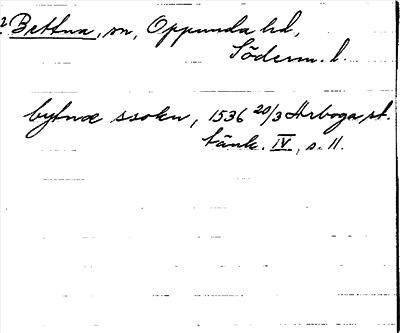 ? Bettna, sn, Oppunda hd,
Söderm. l.
bytnæ ssokn, 1536 20/3 Arboga st.
tänk. IV, s. 11.